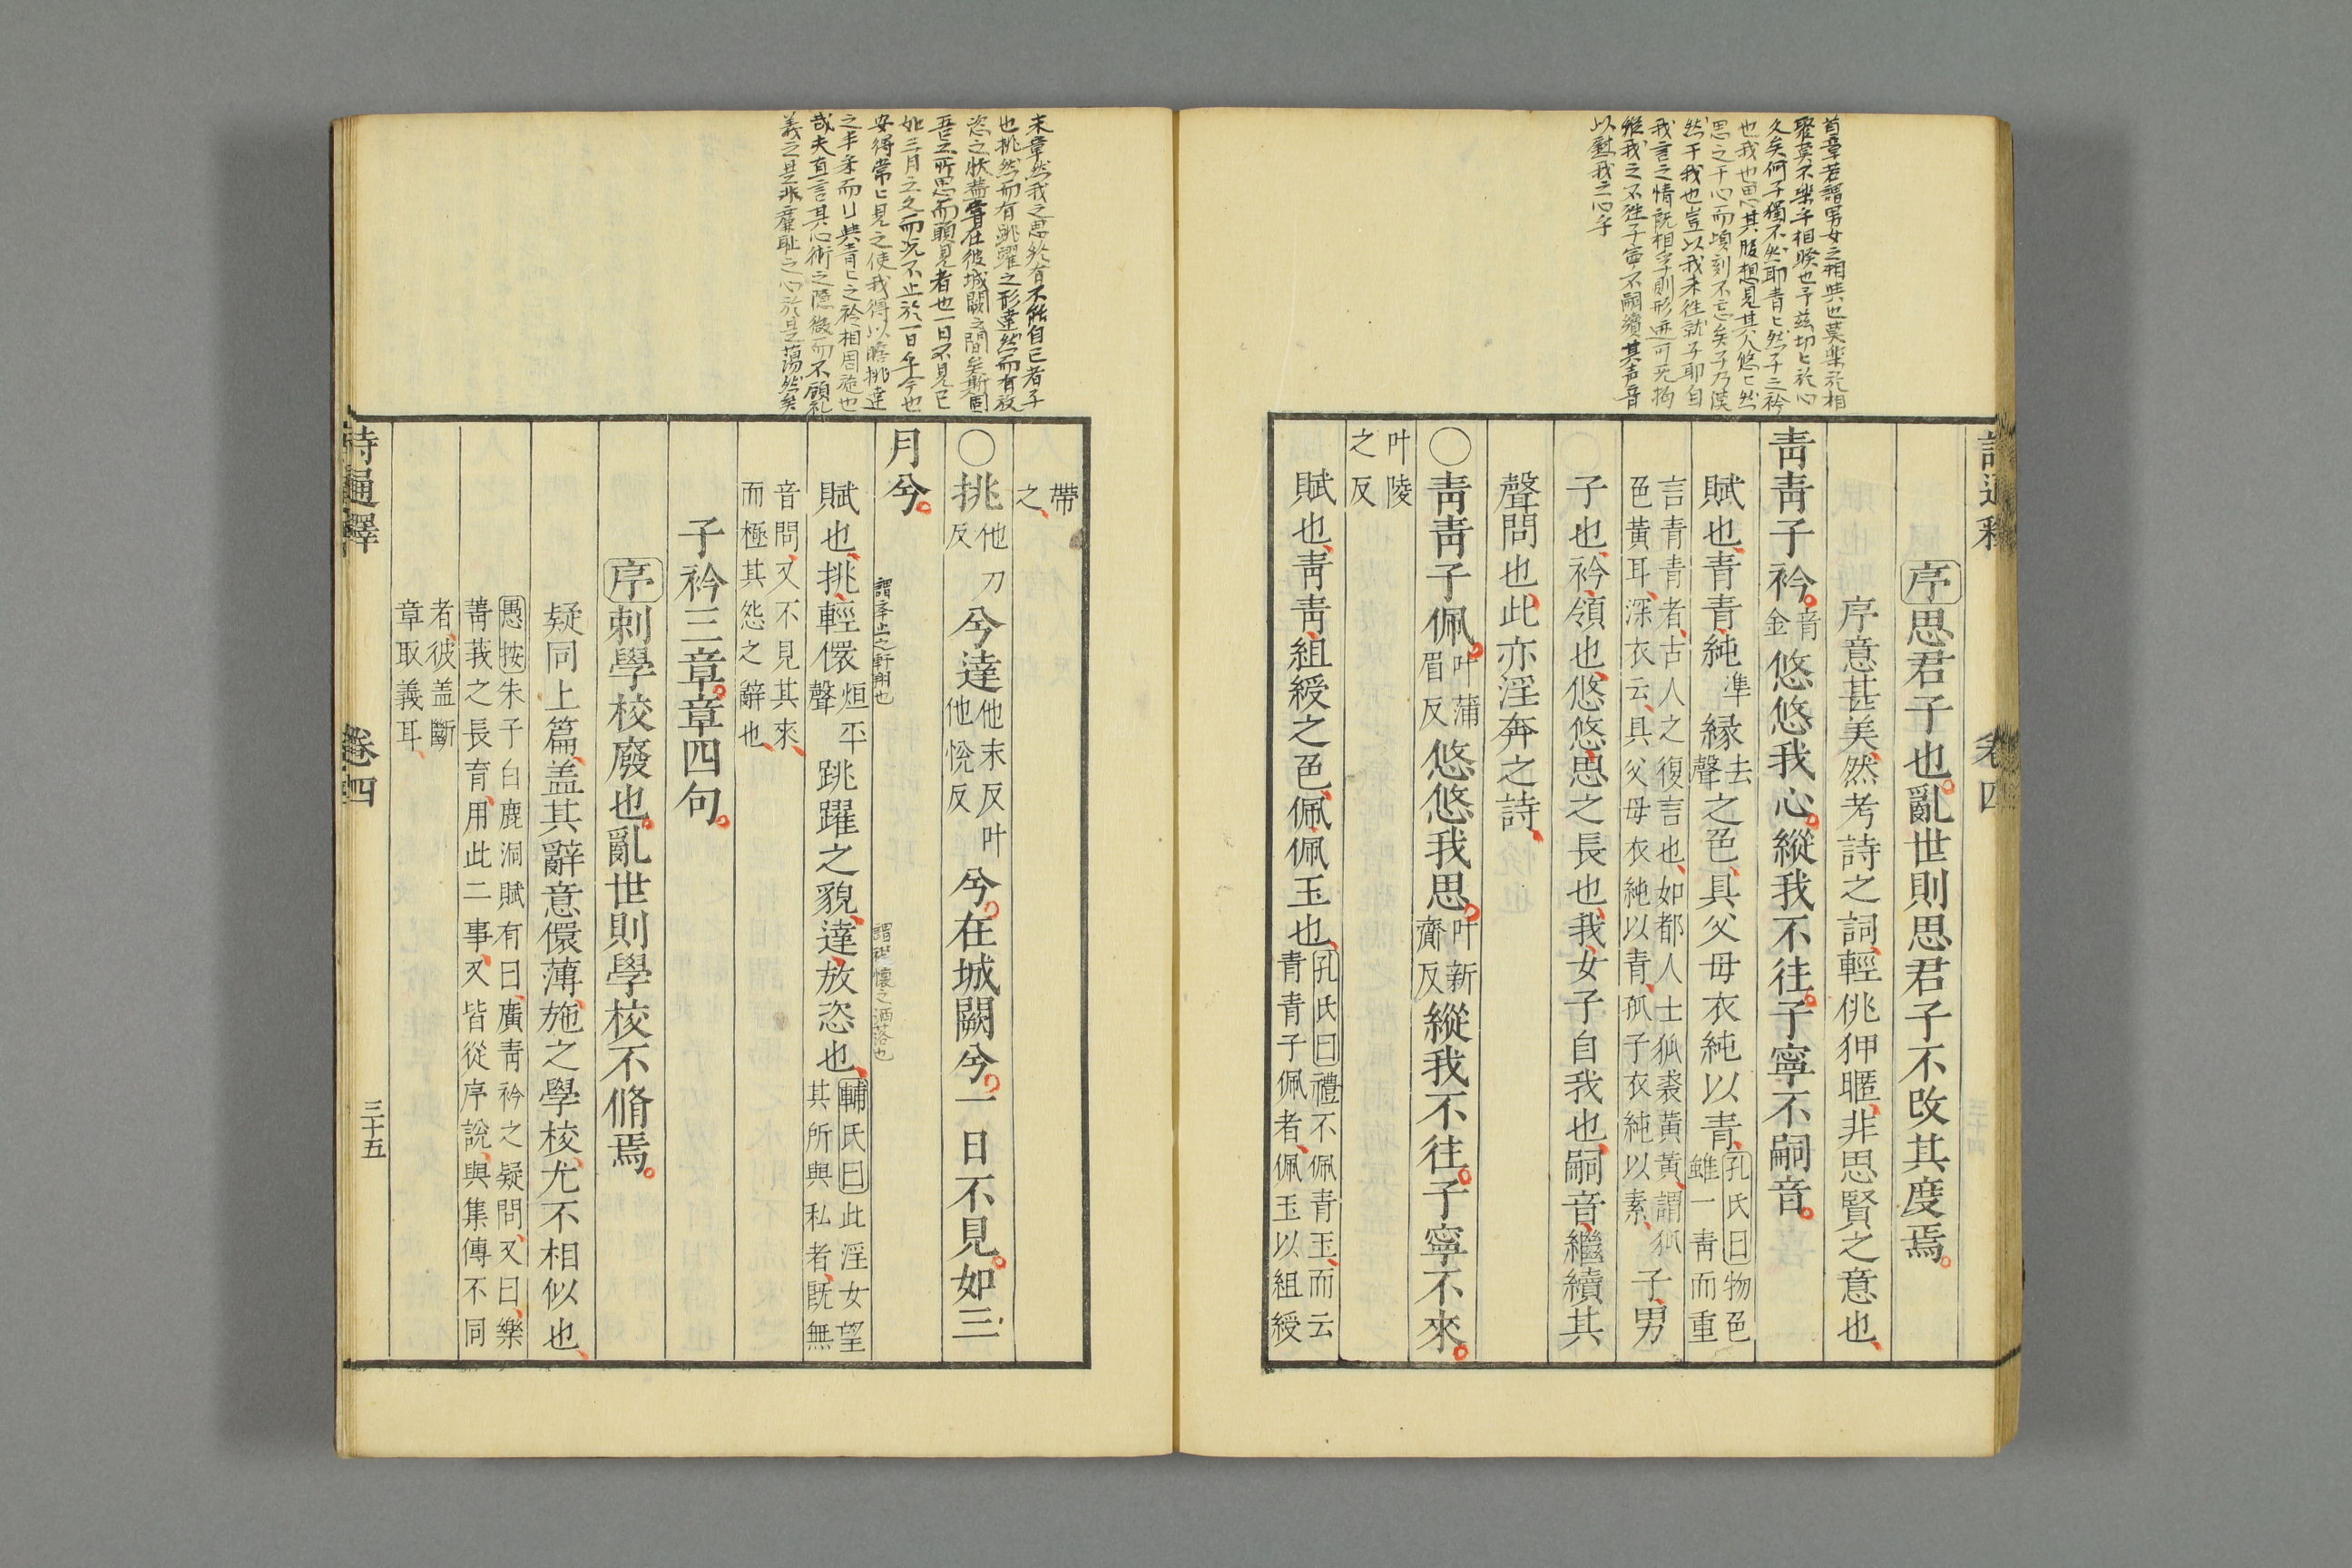 首章若謂男女之相與也莫樂於相
聚莫不樂乎相暌也予玆切匕於心
久矣何子獨不然耶青匕然子之衿
也我也思其服想見其人悠匕然
思之于心而頃刻不忘矣子乃漠
然于我也豈以我未徃就子耶自
我言之情既相孚則形迹可无拘
縱我之不徃子寧不嗣續其声音
以慰我之心乎
詩通釋 卷四
序思君子也亂世則思君子不改其度焉
序意甚美然考詩之詞輕佻狎暱非思賢之意也
靑靑子衿音金悠悠我心縱我不往子寧不嗣音
賦也靑靑純準緣去聲之色具父母衣純以青孔氏曰物色雖一靑而重
言青青者古人之復言也如都人士狐裘黃黃謂狐
色黃耳深衣云具父母衣純以青孤子衣純以素子男
子也衿領也悠悠思之長也我女子自我也嗣音繼續其
聲問也此亦淫奔之詩
〇靑靑子佩叶蒲眉反悠悠我思叶新齎反縱我不往子寧不來
叶陵之反
賦也靑靑組綬之色佩佩玉也孔氏曰禮不佩青玉而云青青子佩者佩玉以組綬
末章然我之思終有不能自已者子
也挑然而有跳躍之形達然而有放
恣之狀葢嘗在彼城闕之間矣斯固
吾之所思而願見者也一日不見已
如三月之久而况不止於一日乎今也
安得常匕見之使我得以瞻挑達
之丰采而與青匕之衿相周旋也
哉夫直言其心術之隱微而不顧礼
義之是非廉耻之心於是蕩然矣
帶之
〇挑他刀反兮達他末反叶他悅反兮在城闕兮一日不見如三
月兮
謂序止之軒翔也
謂襟懷之洒落也
賦也挑輕儇烜平聲跳躍之貌達放恣也輔氏曰此淫女望其所與私者旣無
音問又不見其來
而極其怨之辭也
子衿三章章四句
序刺學校廢也亂世則學校不脩焉
疑同上篇盖其辭意儇薄施之學校尤不相似也
愚按朱子白鹿洞賦有曰廣靑衿之疑問又曰樂
菁莪之長育用此二事又皆從序說與集傳不同
者彼盖斷
章取義耳
詩通釋 卷四 三十五